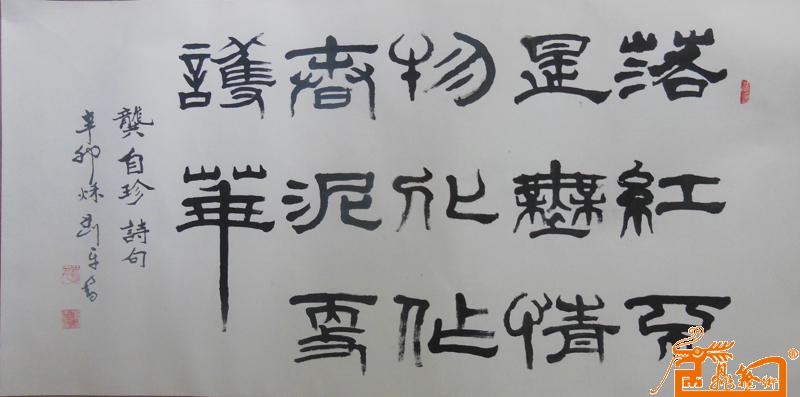 落紅不
是無情
物化作
春泥更
護華
龔自珍詩句
辛卯秌劉平書